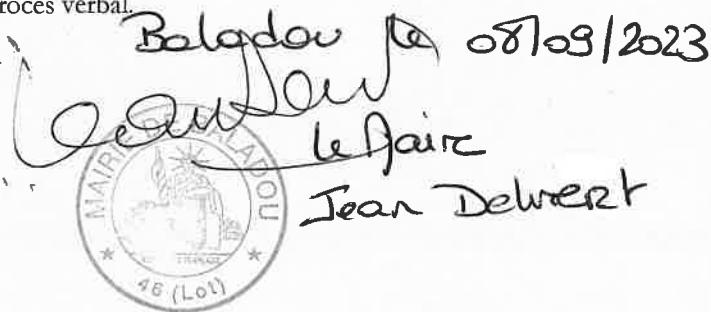 roces verbal.
Baladou le 08/09/2023
le Maire
Jean Delvert
MAIRIE DE BALADOU
46 (Lot)